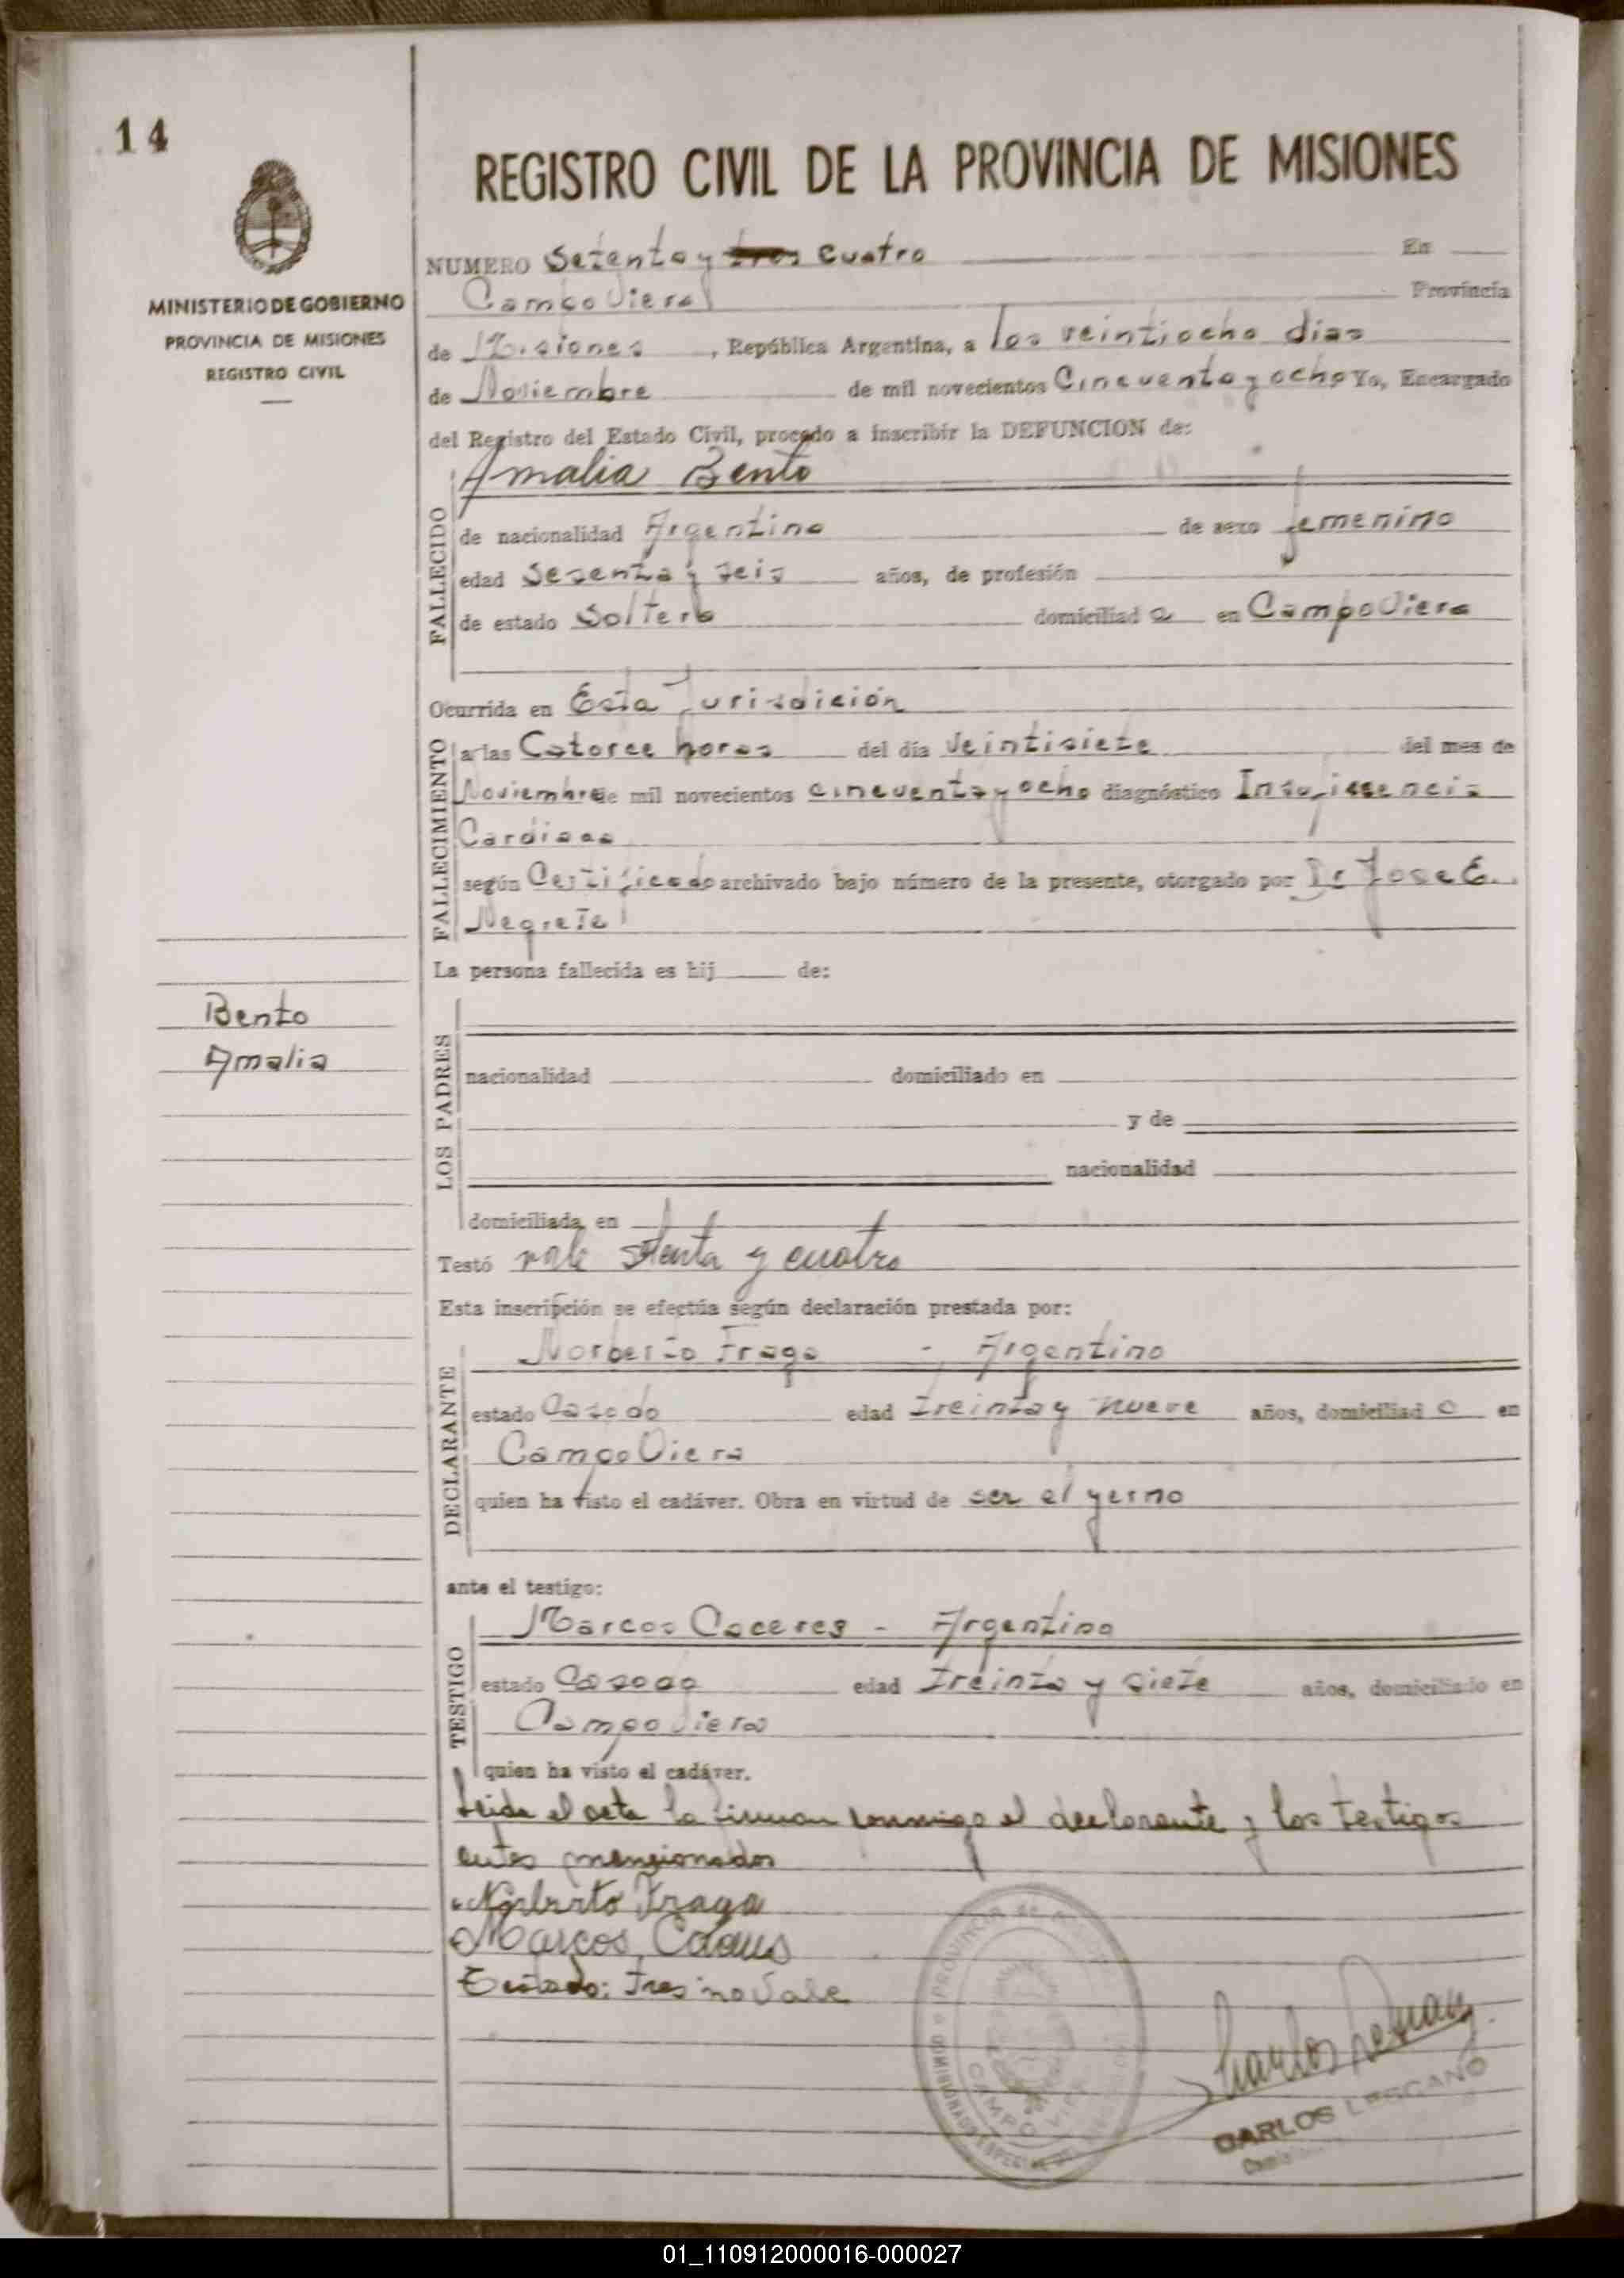 14
REGISTRO CIVIL DE LA PROVINCIA DE MISIONES
MINISTERIO DE GOBIERNO
PROVINCIA DE MISIONES
REGISTRO CIVIL
NUMERO Setenta y tres cuatro En
Campo Viera Provincia
de Misiones, República Argentina, a los veintiocho dias
de Noviembre de mil novecientos Cincuenta y ocho Yo, Encargado
del Registro del Estado Civil, procedo a inscribir la DEFUNCION de:
Amalia Bento
FALLECIDO
de nacionalidad Argentina de sexo femenino
edad Sesenta y seis años, de profesión
de estado Soltera domiciliad a en Campo Viera
Ocurrida en Esta Jurisdición
FALLECIMIENTO
a las Catorce horas del día Veintisiete del mes de
Noviembre de mil novecientos cincuenta y ocho diagnóstico
Cardiaca
según Certificado archivado bajo número de la presente, otorgado por Dr Jose E.
Negrete
La persona fallecida es hij de:
Bento
Amalia
LOS PADRES
nacionalidad domiciliado en
y de
nacionalidad
domiciliada en
Testó vale setenta y cuatro
Esta inscripción se efectúa según declaración prestada por:
DECLARANTE
Norberto Fraga - Argentino
estado Casado edad treinta y nueve años, domiciliad o en
Campo Viera
quien ha visto el cadáver. Obra en virtud de ser el yerno
ante el testigo:
TESTIGO
Marcos Caceres - Argentino
estado Casado edad treinta y siete años, domiciliado en
Campo Viera
quien ha visto el cadáver.
Leida el acta la firman conmigo el declarante y los testigos
antes mencionados
Norberto Fraga
Marcos Caceres
Testado: tres no vale
PROVINCIA DE
CAMPO VIERA
CARLOS LESCANO
01_110912000016-000027